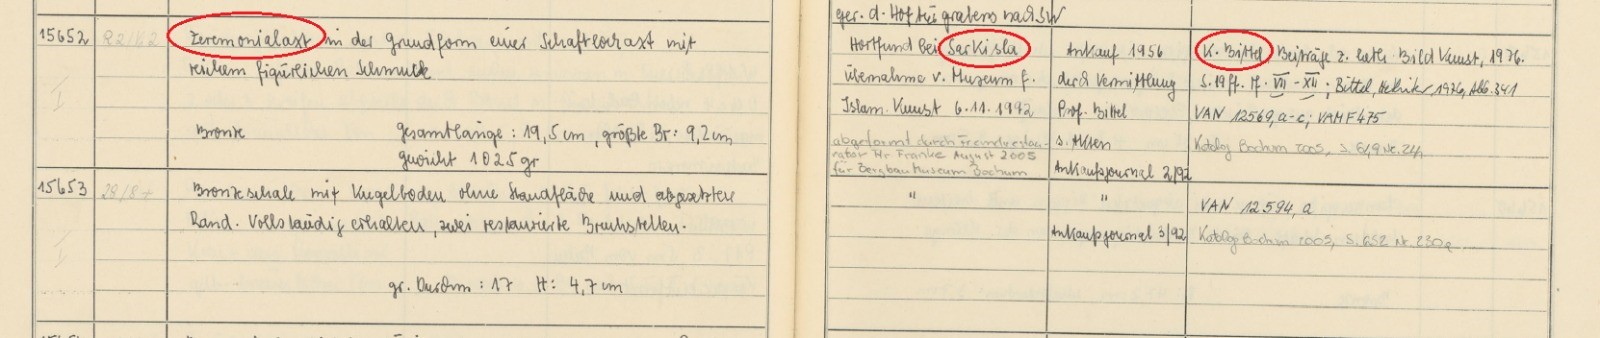 ger. d. Hofhügrabens nach SW
15652
Zeremonialaxt in der Grundform einer Schaftlochaxt mit
reichem figürlichen Schmuck
Bronze
Gesamtlänge : 19,5 cm, größte Br : 9,2 cm
Gewicht 1025 gr
Hortfund bei Sarkisla
Übernahme v. Museum f.
Islam. Kunst 6.11.1992
abgeformt durch Fremdrestau-
rator Hr Franke August 2005
für Bergbau Museum Bochum
Ankauf 1956
durch Vermittlung
Prof. Bittel
s. Akten
Ankaufsjournal 2/92
K. Bittel Beiträge z. heth. Bild Kunst, 1976.
S. 19 ff. Tf. VII - XII ; Bittel, Hethiter, 1976, Abb. 341
VAN 12569, a-c ; VAMF 475
Katalog Bochum 2005, S.
15653
28/8
Bronzeschale mit Kugelboden ohne Standfläche und abgesetzten
Rand. Vollständig erhalten, zwei restaurierte Bruchstellen.
gr. Durchm : 17 H : 4,7 cm
" "
Ankaufsjournal 3/92
VAN 12594, a
Katalog Bochum 2005, S. 652 Nr. 230